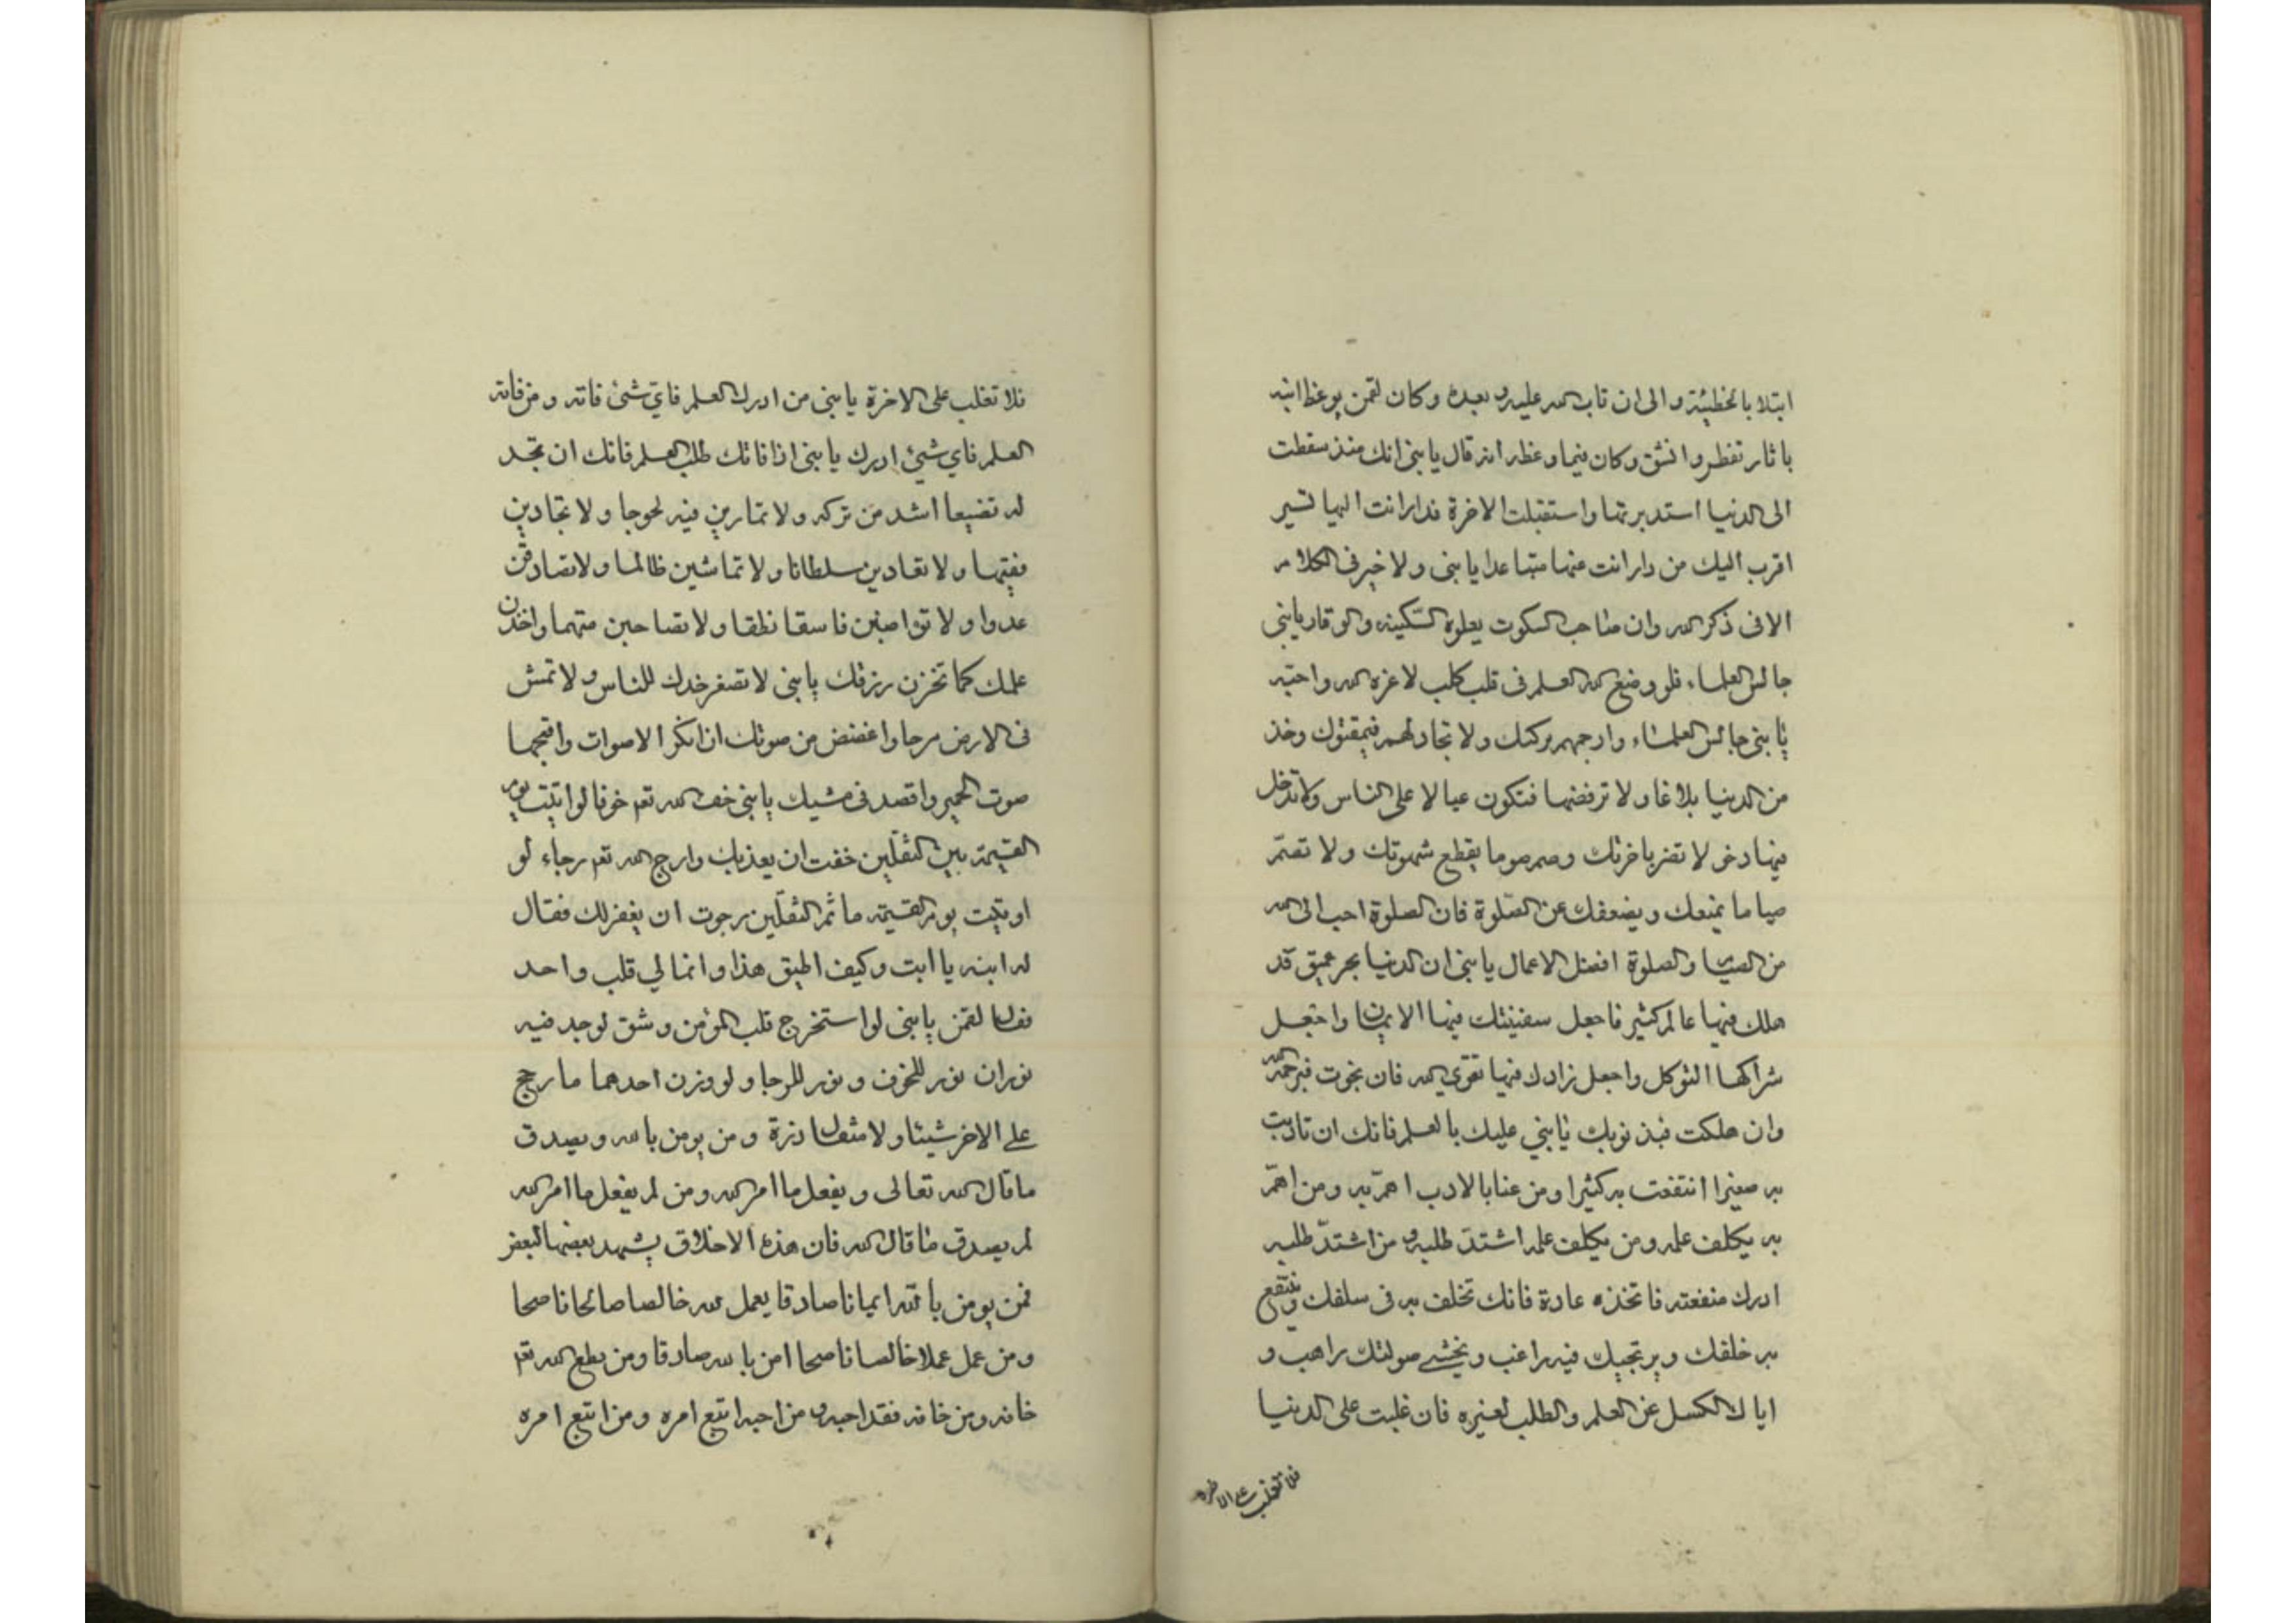 ابتلا بالخطيئة والى ان تاب الله عليه وبعده وكان لقمن يوعظ ابنه
باثار تفطر وانشق وكان فيما وعظه انه قال يا بنى انك منذ سقطت
الى الدنيا استدبرتها واستقبلت الاخرة فدار انت اليها تسير
اقرب اليك من دار انت عنها متباعد يا بنى ولا خير فى الكلام
الا فى ذكر الله وان صاحب السكوت يعلوه السّكينه والوقار يا بنى
جالس العلماء فلو وضع الله العلم فى قلب كلب لاعزه الله واحبّه
يا بنى جالس العلماء وازحمهم بركبتك ولا تجادلهم فيمقتوك وخذ
من الدنيا بلاغا ولا ترفضها فتكون عيالا على الناس ولا تدخل
فيها دخولا تضر باخرتك وصم صوما يقطع شهوتك ولا تصم
صياما يمنعك ويضعفك عن الصّلوة فان الصلوة احب الى الله
من الصيام والصلوة افضل الاعمال يا بنى ان الدنيا بحر عميق قد
هلك فيها عالم كثير فاجعل سفينتك فيها الايمان واجعل
شراكها التوكل واجعل زادك فيها تقوى الله فان نجوت فبرحمة الله
وان هلكت فبذنوبك يا بني عليك بالعلم فانك ان تادبت
به صغيرا انتفعت به كثيرا ومن عنا بالادب اهمّ به ومن اهمّ
به يكلف علمه ومن يكلف علمه اشتدّ طلبه ومن اشتدّ طلبه
ادرك منفعته فاتخذه عادة فانك تخلف به فى سلفك وينتفع
به خلفك ويرتجيك فيه راغب ويخشى صولتك راهب و
اياك الكسل عن العلم والطلب لغيره فان غلبت على الدنيا
فلا تغلب على الاخره
فلا تغلب على الاخرة يا بنى من ادرك العلم فاي شئ فاته ومن فاته
العلم فاي شيئ ادرك يا بنى اذا فاتك طلب العلم فانك ان تجد
له تضييعا اشد من تركه ولا تمارين فيه لحوجا ولا تجادين
فقيها ولا تعادين سلطانا ولا تماشين ظالما ولا تصادقن
عدوا ولا تواصنين فاسقا نطقا ولا تصاحبن متهما واخزن
علمك كما تخزن رزقك يا بنى لا تصغر خدك للناس ولا تمش
فى الارض مرحا واغضض من صوتك ان انكر الاصوات واقبحها
صوت الحمير واقصد فى مشيك يا بنى خف الله تعم خوفا لو اتيت يوم
القيمة ببر الثقلين خفت ان يعذبك وارج الله تعم رجاء لو
اوتيت يوم القيمة ماثم الثقلين رجوت ان يغفر لك فقال
له ابنه يا ابت وكيف اطيق هذا وانما لي قلب واحد
فقال لقمن يا بنى لو استخرج قلب المؤمن وشق لوجد فيه
نوران نور للخوف ونور للرجا ولو وزن احدهما ما رجح
على الاخر شيئا ولا مثقال ذرة ومن يومن بالله ويصدق
ما قال الله تعالى ويفعل ما امر الله ومن لم يفعل ما امر الله
لم يصدق ما قال الله فان هذه الاخلاق يشهد بعضها لبعض
فمن يومن بالله ايمانا صادقا يعمل لله خالصا صالحا ناصحا
ومن عمل عملا خالصا ناصحا امن بالله صادقا ومن يطع الله تعم
خافه ومن خافه فقد احبه ومن احبه اتبع امره ومن اتبع امره